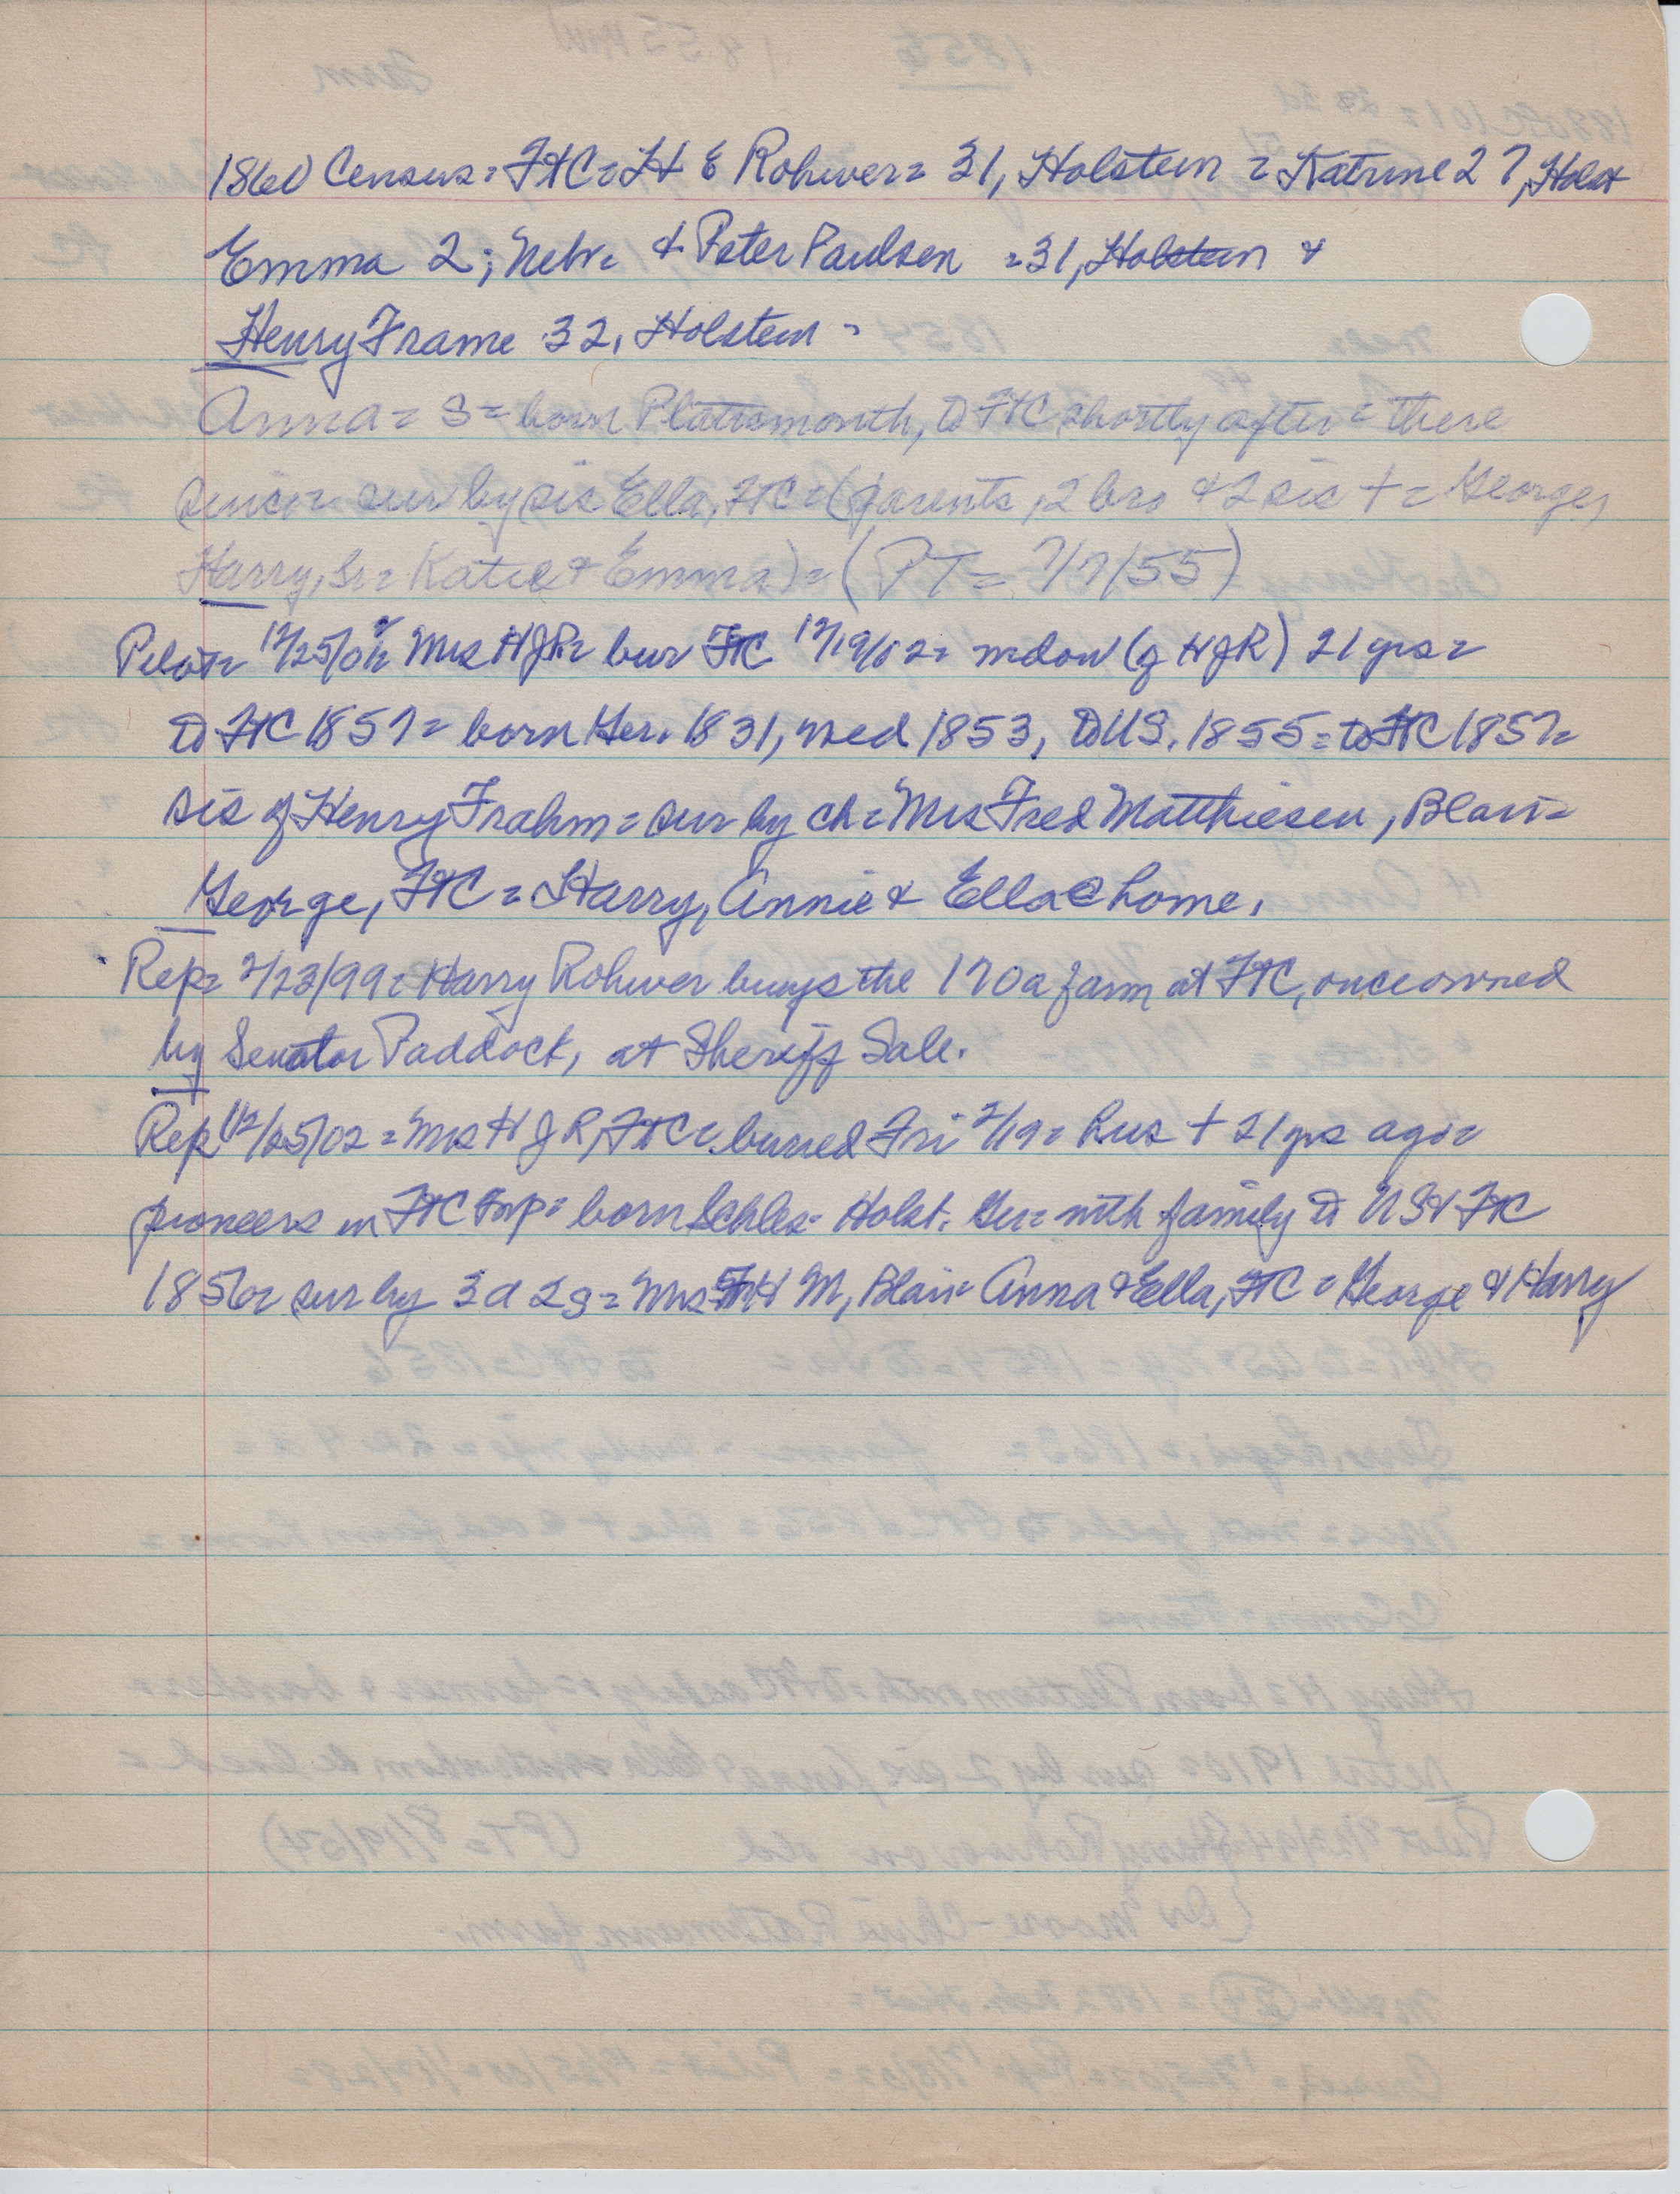 1860 Census = FtC = H E Rohwer = 31, Holstein = Katrine 27, Holst
Emma 2; Neb = & Peter Paulsen = 31, Holstein &
Henry Frame 32, Holstein =
Anna = S = born Plattsmouth, to FtC shortly after = there
since = sur by sis Ella, FtC = (parents, 2 bro & 2 sis + = George,
Harry, Sr = Katie & Emma) = (PT = 7/7/55)
Pilot = 12/25/02 Mrs HJR = bur FtC 12/19/02 = widow (of HJR) 21 yrs =
to FtC 1857 = born Ger. 1831, med 1853, to US. 1855 = to FtC 1857 =
sis of Henry Frahm = sur by ch = Mrs Fred Matthiesen, Blair =
George, FtC = Harry, Annie & Ella @ home.
Rep = 2/23/99 = Harry Rohwer buys the 170 a farm at FtC, once owned
by Senator Paddock, at Sheriff Sale.
Rep 12/25/02 = Mrs HJR, FtC = buried Fri 12/19 = hus + 21 yrs ago =
pioneers in FtC Twp = born Schles- Holst. Ger = with family to US & FtC
1856 = sur by 3 d 2 s = Mrs FH M, Blair = Anna & Ella, FtC = George & Harry